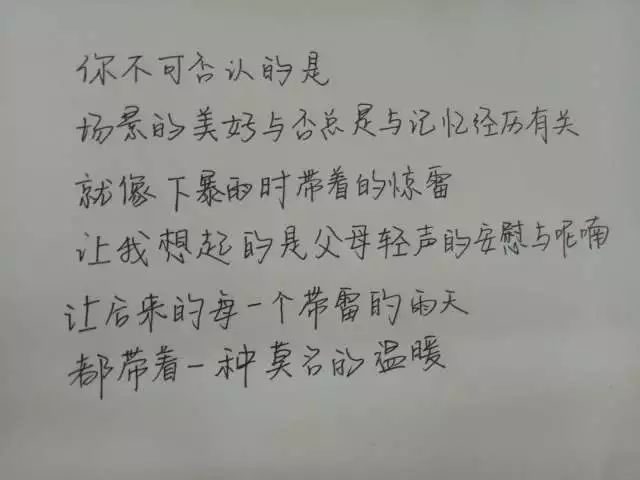 你不可否认的是
场景的美好与否总是与记忆经历有关
就像下暴雨时带着的惊雷
让我想起的是父母轻声的安慰与呢喃
让后来的每一个带雷的雨天
都带着一种莫名的温暖